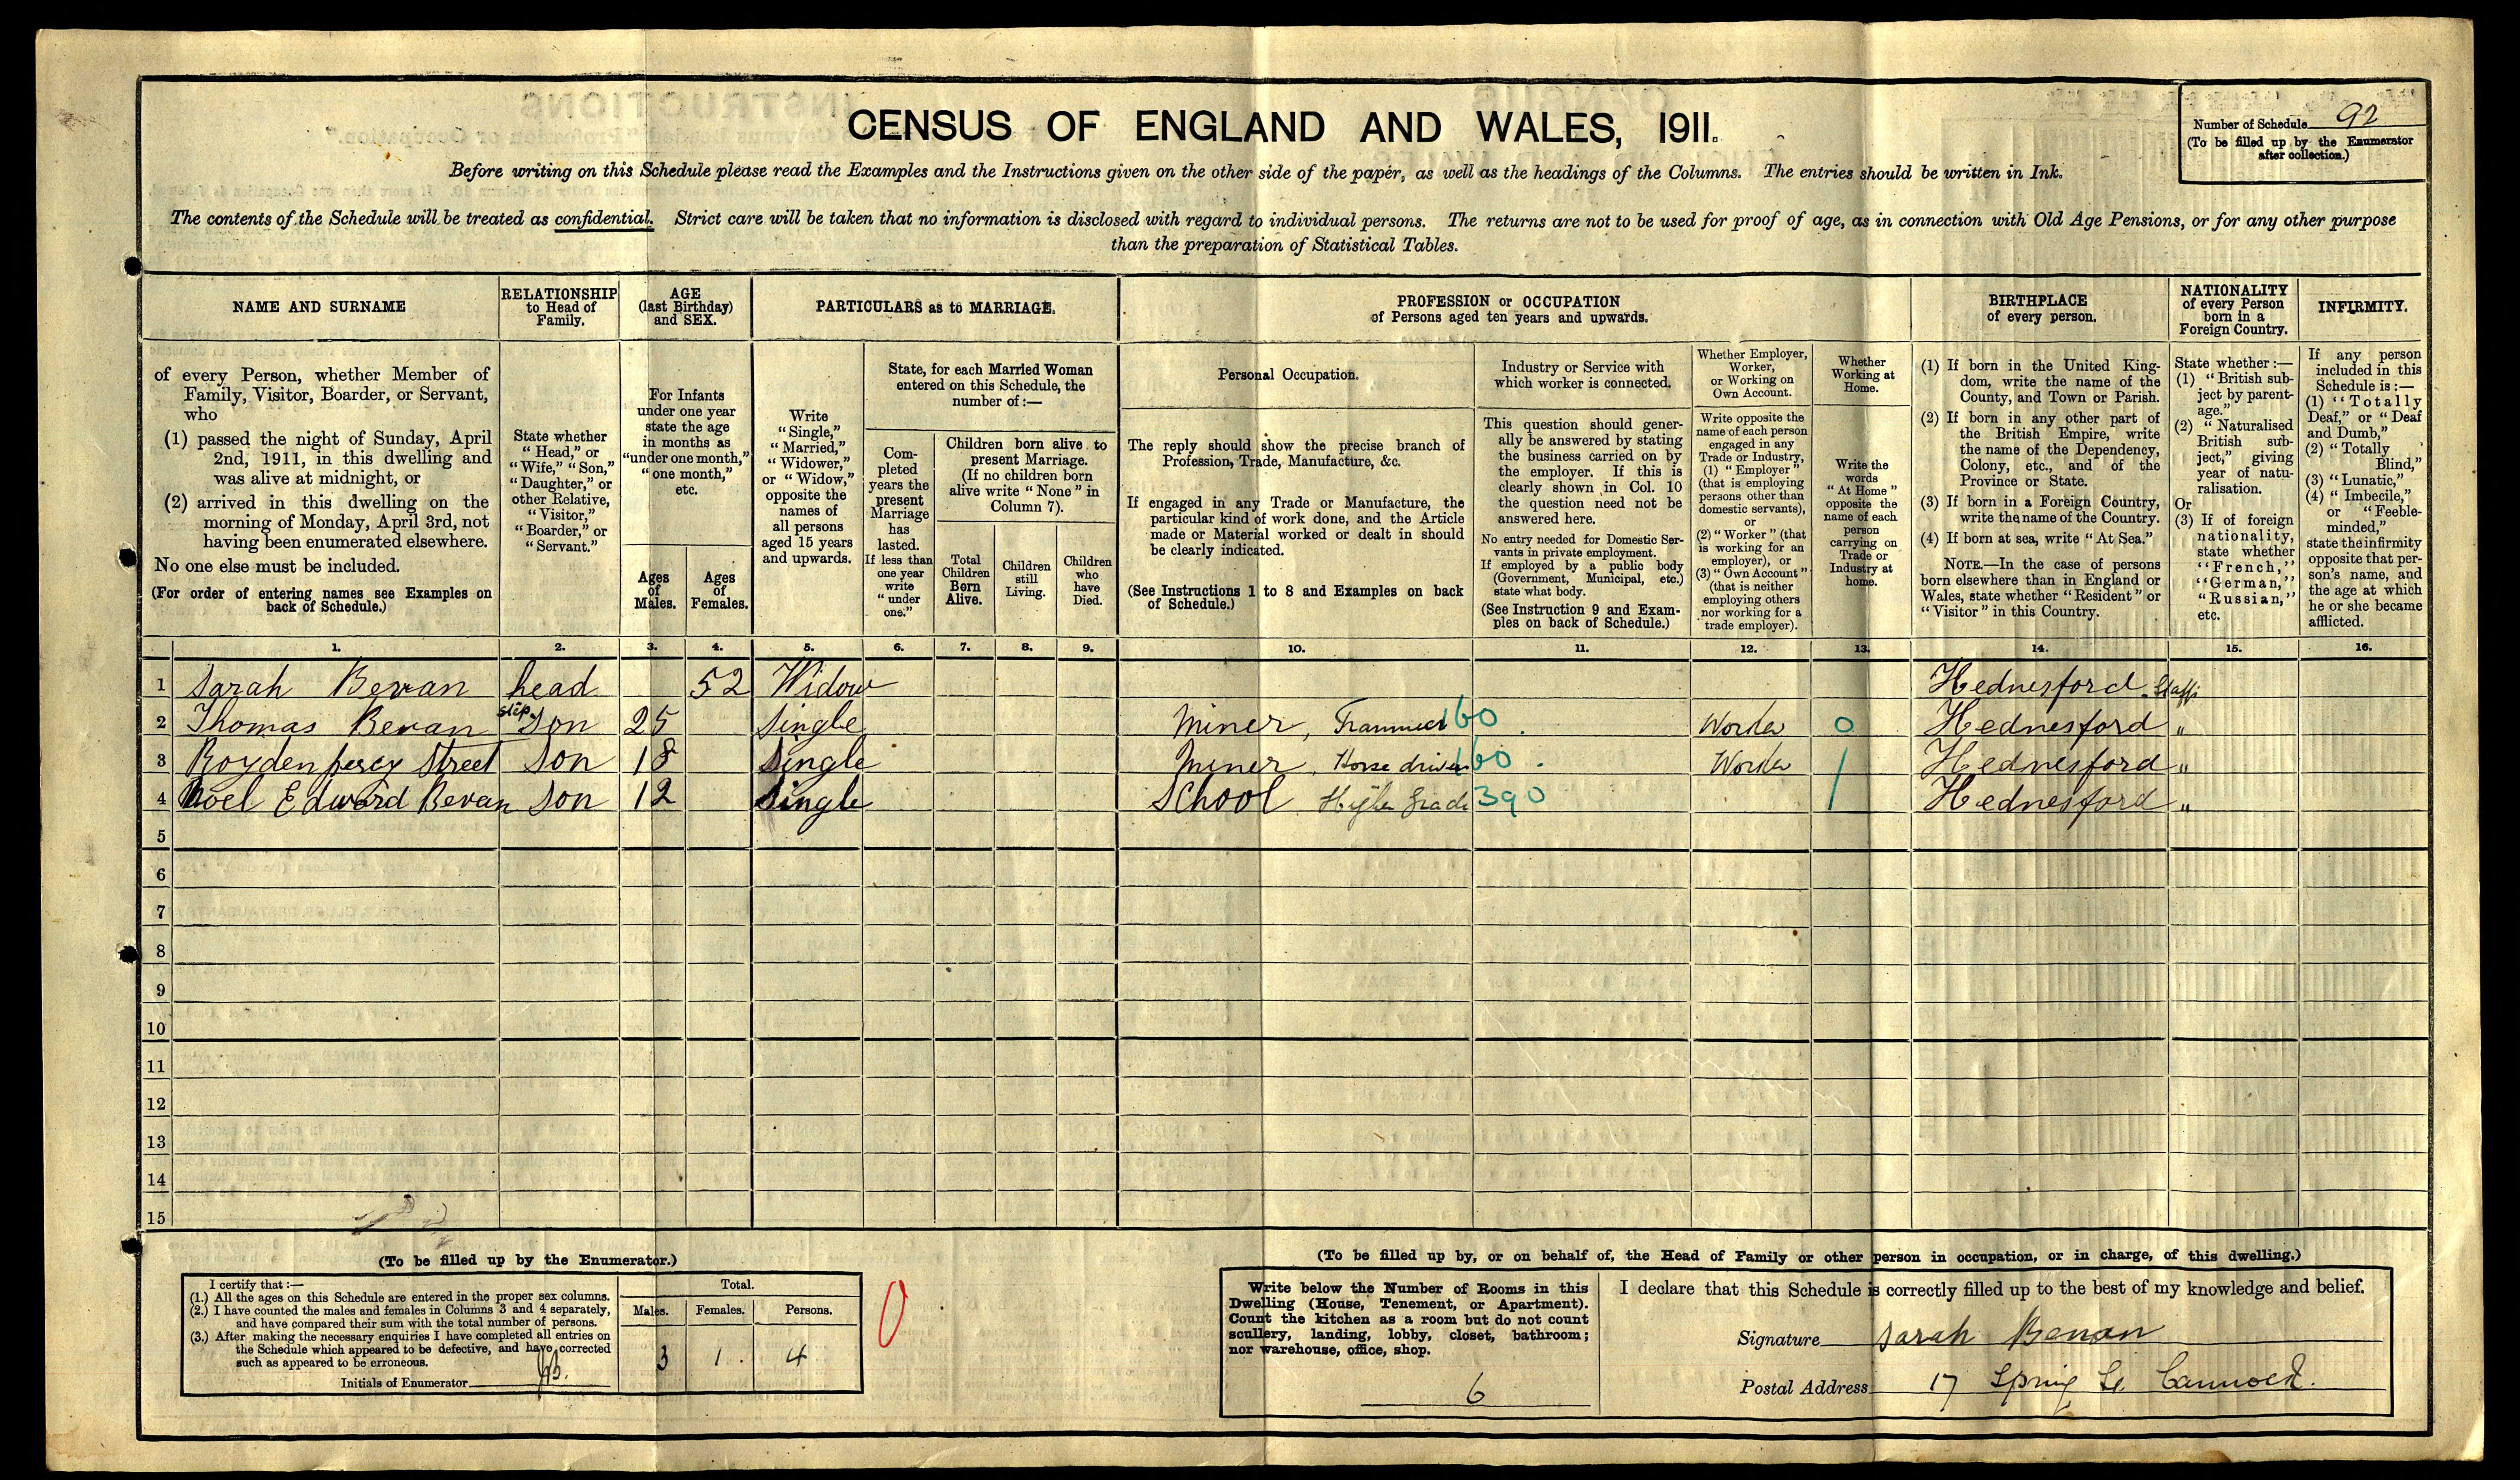 CENSUS OF ENGLAND AND WALES, 1911.
Number of Schedule 92
(To be filled up by the Enumerator
after collection.)
Before writing on this Schedule please read the Examples and the Instructions given on the other side of the paper, as well as the headings of the Columns. The entries should be written in Ink.
The contents of the Schedule will be treated as confidential. Strict care will be taken that no information is disclosed with regard to individual persons. The returns are not to be used for proof of age, as in connection with Old Age Pensions, or for any other purpose
than the preparation of Statistical Tables.
NAME AND SURNAME
of every Person, whether Member of
Family, Visitor, Boarder, or Servant,
who
(1) passed the night of Sunday, April
2nd, 1911, in this dwelling and
was alive at midnight, or
(2) arrived in this dwelling on the
morning of Monday, April 3rd, not
having been enumerated elsewhere.
No one else must be included.
(For order of entering names see Examples on
back of Schedule.)
RELATIONSHIP
to Head of
Family.
State whether
"Head," or
"Wife," "Son,"
"Daughter," or
other Relative,
"Visitor,"
"Boarder," or
"Servant."
AGE
(last Birthday)
and SEX.
For Infants
under one year
state the age
in months as
"under one month,"
"one month,"
etc.
Ages
of
Males.
Ages
of
Females.
PARTICULARS as to MARRIAGE.
Write
"Single,"
"Married,"
"Widower,"
or "Widow,"
opposite the
names of
all persons
aged 15 years
and upwards.
State, for each Married Woman
entered on this Schedule, the
number of:—
Com-
pleted
years the
present
Marriage
has
lasted.
If less than
one year
write
"under
one."
Children born alive to
present Marriage.
(If no children born
alive write "None" in
Column 7).
Total
Children
Born
Alive.
Children
still
Living.
Children
who
have
Died.
PROFESSION or OCCUPATION
of Persons aged ten years and upwards.
Personal Occupation.
The reply should show the precise branch of
Profession, Trade, Manufacture, &c.
If engaged in any Trade or Manufacture, the
particular kind of work done, and the Article
made or Material worked or dealt in should
be clearly indicated.
(See Instructions 1 to 8 and Examples on back
of Schedule.)
Industry or Service with
which worker is connected.
This question should gener-
ally be answered by stating
the business carried on by
the employer. If this is
clearly shown in Col. 10
the question need not be
answered here.
No entry needed for Domestic Ser-
vants in private employment.
If employed by a public body
(Government, Municipal, etc.)
state what body.
(See Instruction 9 and Exam-
ples on back of Schedule.)
Whether Employer,
Worker,
or Working on
Own Account.
Write opposite the
name of each person
engaged in any
Trade or Industry,
(1) "Employer"
(that is employing
persons other than
domestic servants),
or
(2) "Worker" (that
is working for an
employer), or
(3) "Own Account"
(that is neither
employing others
nor working for a
trade employer).
Whether
Working at
Home.
Write the
words
"At Home"
opposite the
name of each
person
carrying on
Trade or
Industry at
home.
BIRTHPLACE
of every person.
(1) If born in the United King-
dom, write the name of the
County, and Town or Parish.
(2) If born in any other part of
the British Empire, write
the name of the Dependency,
Colony, etc., and of the
Province or State.
(3) If born in a Foreign Country,
write the name of the Country.
(4) If born at sea, write "At Sea."
NOTE.—In the case of persons
born elsewhere than in England or
Wales, state whether "Resident" or
"Visitor" in this Country.
NATIONALITY
of every Person
born in a
Foreign Country.
State whether:—
(1) "British sub-
ject by parent-
age."
(2) "Naturalised
British sub-
ject," giving
year of natu-
ralisation.
Or
(3) If of foreign
nationality,
state whether
"French,"
"German,"
"Russian,"
etc.
INFIRMITY.
If any person
included in this
Schedule is:—
(1) "Totally
Deaf," or "Deaf
and Dumb,"
(2) "Totally
Blind,"
(3) "Lunatic,"
(4) "Imbecile,"
or "Feeble-
minded,"
state the infirmity
opposite that per-
son's name, and
the age at which
he or she became
afflicted.
1. 2. 3. 4. 5. 6. 7. 8. 9. 10. 11. 12. 13. 14. 15. 16.
1 Sarah Bevan head 52 Widow Hednesford Staffs
2 Thomas Bevan step son 25 Single Miner, Trammer 160 Worker 0 Hednesford "
3 Royden percy Street Son 18 Single Miner, Horse driver 160 Worker 1 Hednesford "
4 Noel Edward Bevan Son 12 Single School Higher Grade 390 1 Hednesford "
5
6
7
8
9
10
11
12
13
14
15
(To be filled up by the Enumerator.)
I certify that:—
(1.) All the ages on this Schedule are entered in the proper sex columns.
(2.) I have counted the males and females in Columns 3 and 4 separately,
and have compared their sum with the total number of persons.
(3.) After making the necessary enquiries I have completed all entries on
the Schedule which appeared to be defective, and have corrected
such as appeared to be erroneous.
Initials of Enumerator
Total.
Males. Females. Persons.
3 1 4
0
(To be filled up by, or on behalf of, the Head of Family or other person in occupation, or in charge, of this dwelling.)
Write below the Number of Rooms in this
Dwelling (House, Tenement, or Apartment).
Count the kitchen as a room but do not count
scullery, landing, lobby, closet, bathroom;
nor warehouse, office, shop.
6
I declare that this Schedule is correctly filled up to the best of my knowledge and belief.
Signature Sarah Bevan
Postal Address 17 Spring St Cannock.